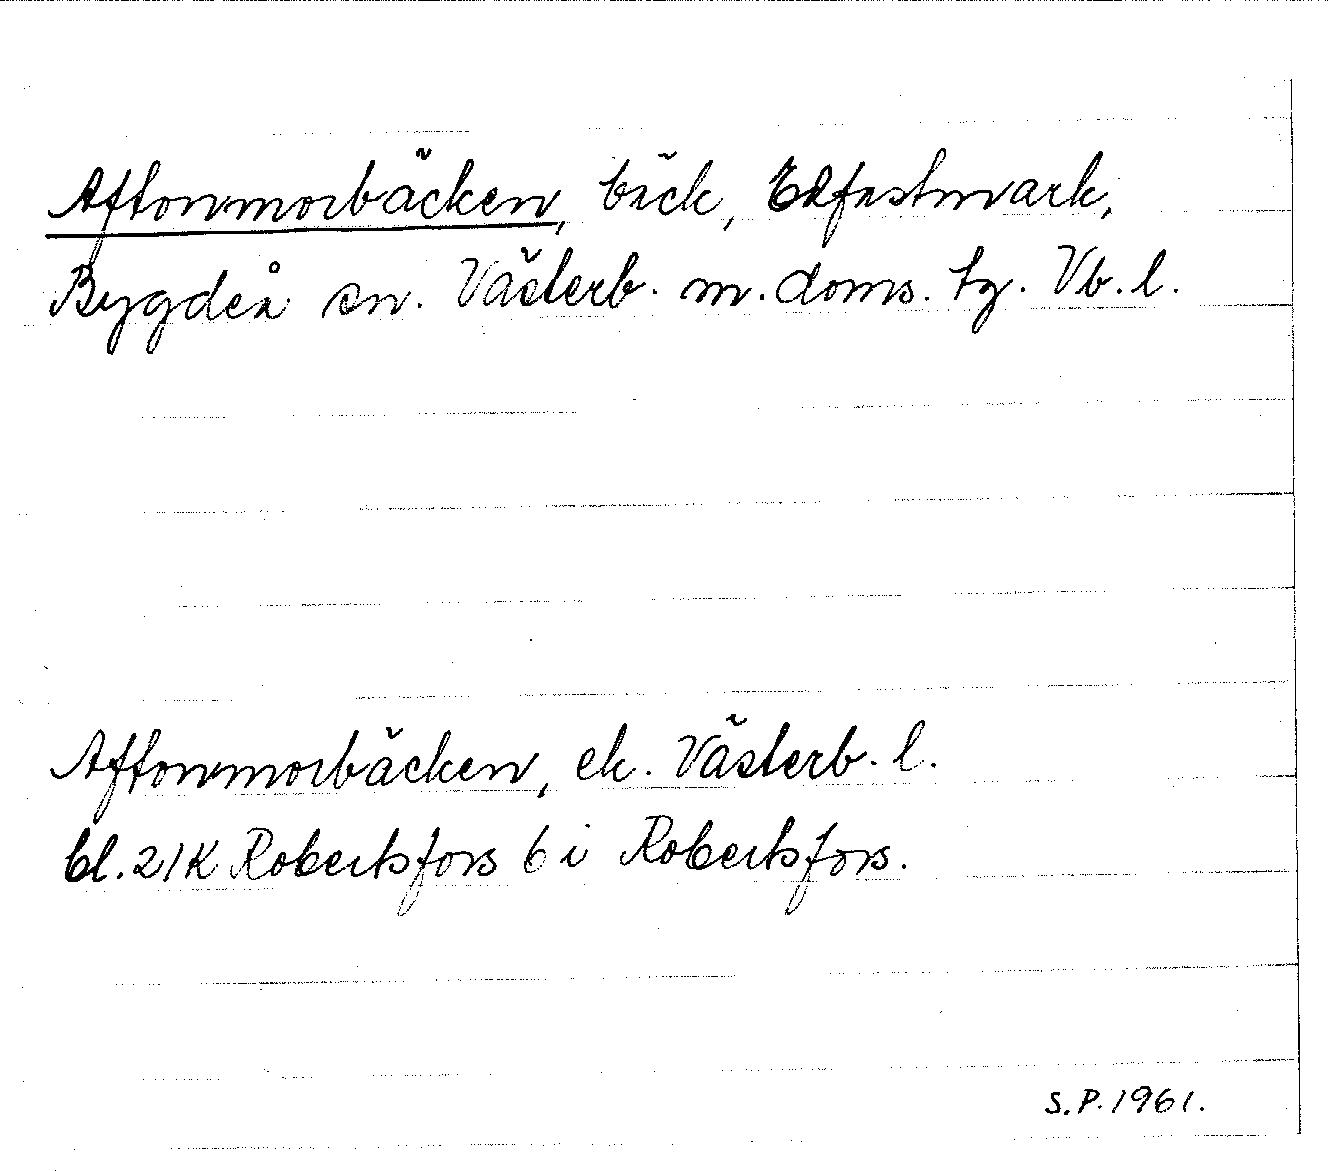 Aftonmorbäcken, bäck, Edfastmark,
Bygdeå sn. Västerb. m. doms. tg. Vb. l.
Aftonmorbäcken, ek. Västerb. l.
bl. 21K Robertsfors 6 i Robertsfors.
S.P. 1961.